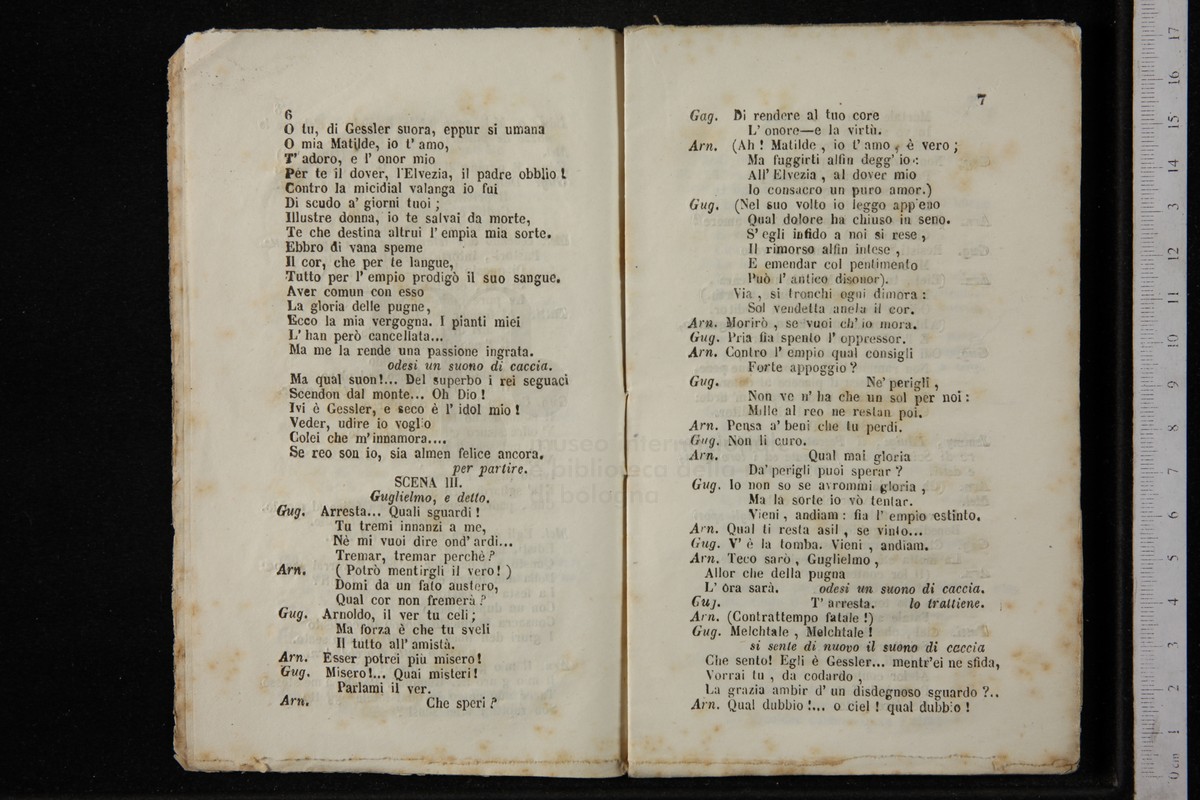 6
O tu, di Gessler suora, eppur si umana
O mia Matilde, io t' amo,
T' adoro, e l' onor mio
Per te il dover, l'Elvezia, il padre obblio!
Contro la micidial valanga io fui
Di scudo a' giorni tuoi;
Illustre donna, io te salvai da morte,
Te che destina altrui l' empia mia sorte.
Ebbro di vana speme
Il cor, che per te langue,
Tutto per l' empio prodigò il suo sangue.
Aver comun con esso
La gloria delle pugne,
Ecco la mia vergogna. I pianti miei
L' han però cancellata...
Ma me la rende una passione ingrata.
odesi un suono di caccia.
Ma qual suon!... Del superbo i rei seguaci
Scendon dal monte... Oh Dio!
Ivi è Gessler, e seco è l' idol mio!
Veder, udire io voglio
Colei che m' innamora....
Se reo son io, sia almen felice ancora.
per partire.
SCENA III.
Guglielmo, e detto.
Gug. Arresta... Quali sguardi!
Tu tremi innanzi a me,
Nè mi vuoi dire ond' ardi...
Tremar, tremar perchè?
Arn. ( Potrò mentirgli il vero! )
Domi da un fato austero,
Qual cor non fremerà?
Gug. Arnoldo, il ver tu celi;
Ma forza è che tu sveli
Il tutto all' amistà.
Arn. Esser potrei più misero!
Gug. Misero!... Quai misteri!
Parlami il ver.
Arn. Che speri?
7
Gag. Di rendere al tuo core
L' onore—e la virtù.
Arn. (Ah! Matilde, io t' amo, è vero;
Ma fuggirti alfin degg' io:
All' Elvezia, al dover mio
Io consacro un puro amor.)
Gug. (Nel suo volto io leggo appeno
Qual dolore ha chiuso in seno.
S' egli infido a noi si rese,
Il rimorso alfin intese,
E emendar col pentimento
Può l' antico disonor).
Via, si tronchi ogni dimora:
Sol vendetta anela il cor.
Arn. Morirò, se vuoi ch' io mora.
Gug. Pria fia spento l' oppressor.
Arn. Contro l' empio qual consigli
Forte appoggio?
Gug. Ne' perigli,
Non ve n' ha che un sol per noi:
Mille al reo ne restan poi.
Arn. Pensa a' beni che tu perdi.
Gug. Non li curo.
Arn. Qual mai gloria
Da' perigli puoi sperar?
Gug. Io non so se avrommi gloria,
Ma la sorte io vò tentar.
Vieni, andiam: fia l' empio estinto.
Arn. Qual ti resta asil, se vinto...
Gug. V' è la tomba. Vieni, andiam.
Arn. Teco sarò, Guglielmo,
Allor che della pugna
L' Ora sarà. odesi un suono di caccia.
Gug. T' arresta. lo trattiene.
Arn. (Contrattempo fatale!)
Gug. Melchtale, Melchtale!
si sente di nuovo il suono di caccia
Che sento! Egli è Gessler... mentr'ei ne sfida,
Vorrai tu, da codardo,
La grazia ambir d' un disdegnoso sguardo?..
Arn. Qual dubbio!... o ciel! qual dubbio!